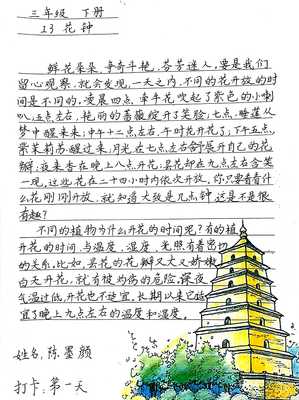 三年级 下册
13 花钟
鲜花朵朵,争奇斗艳,芬芳迷人,要是我们
留心观察,就会发现,一天之内,不同的花开放的时
间是不同的,凌晨四点,牵牛花吹起了紫色的小喇
叭;五点左右,艳丽的蔷薇绽开了笑脸;七点,睡莲从
梦中醒来;中午十二点左右,午时花开花了;下午五点,
茉莉苏醒过来;月光在七点左右舒展开自己的花
瓣;夜来香在晚上八点开花;昙花却在九点左右含笑
一现,这些花在二十四小时内依次开放,你只要看看什
么花刚刚开放,就知道大致是几点钟,这是不是很
有趣?
不同的植物为什么开花的时间不同呢?有的植
开花的时间,与温度、湿度、光照有着密切
的关系,比如,昙花的花瓣又大又娇嫩
白天开花,就有被灼伤的危险,深夜
气温过低,开花也不适宜,长期以来它适
宜了晚上九点左右的温度和湿度,
姓名:陈墨颜
打卡:第一天